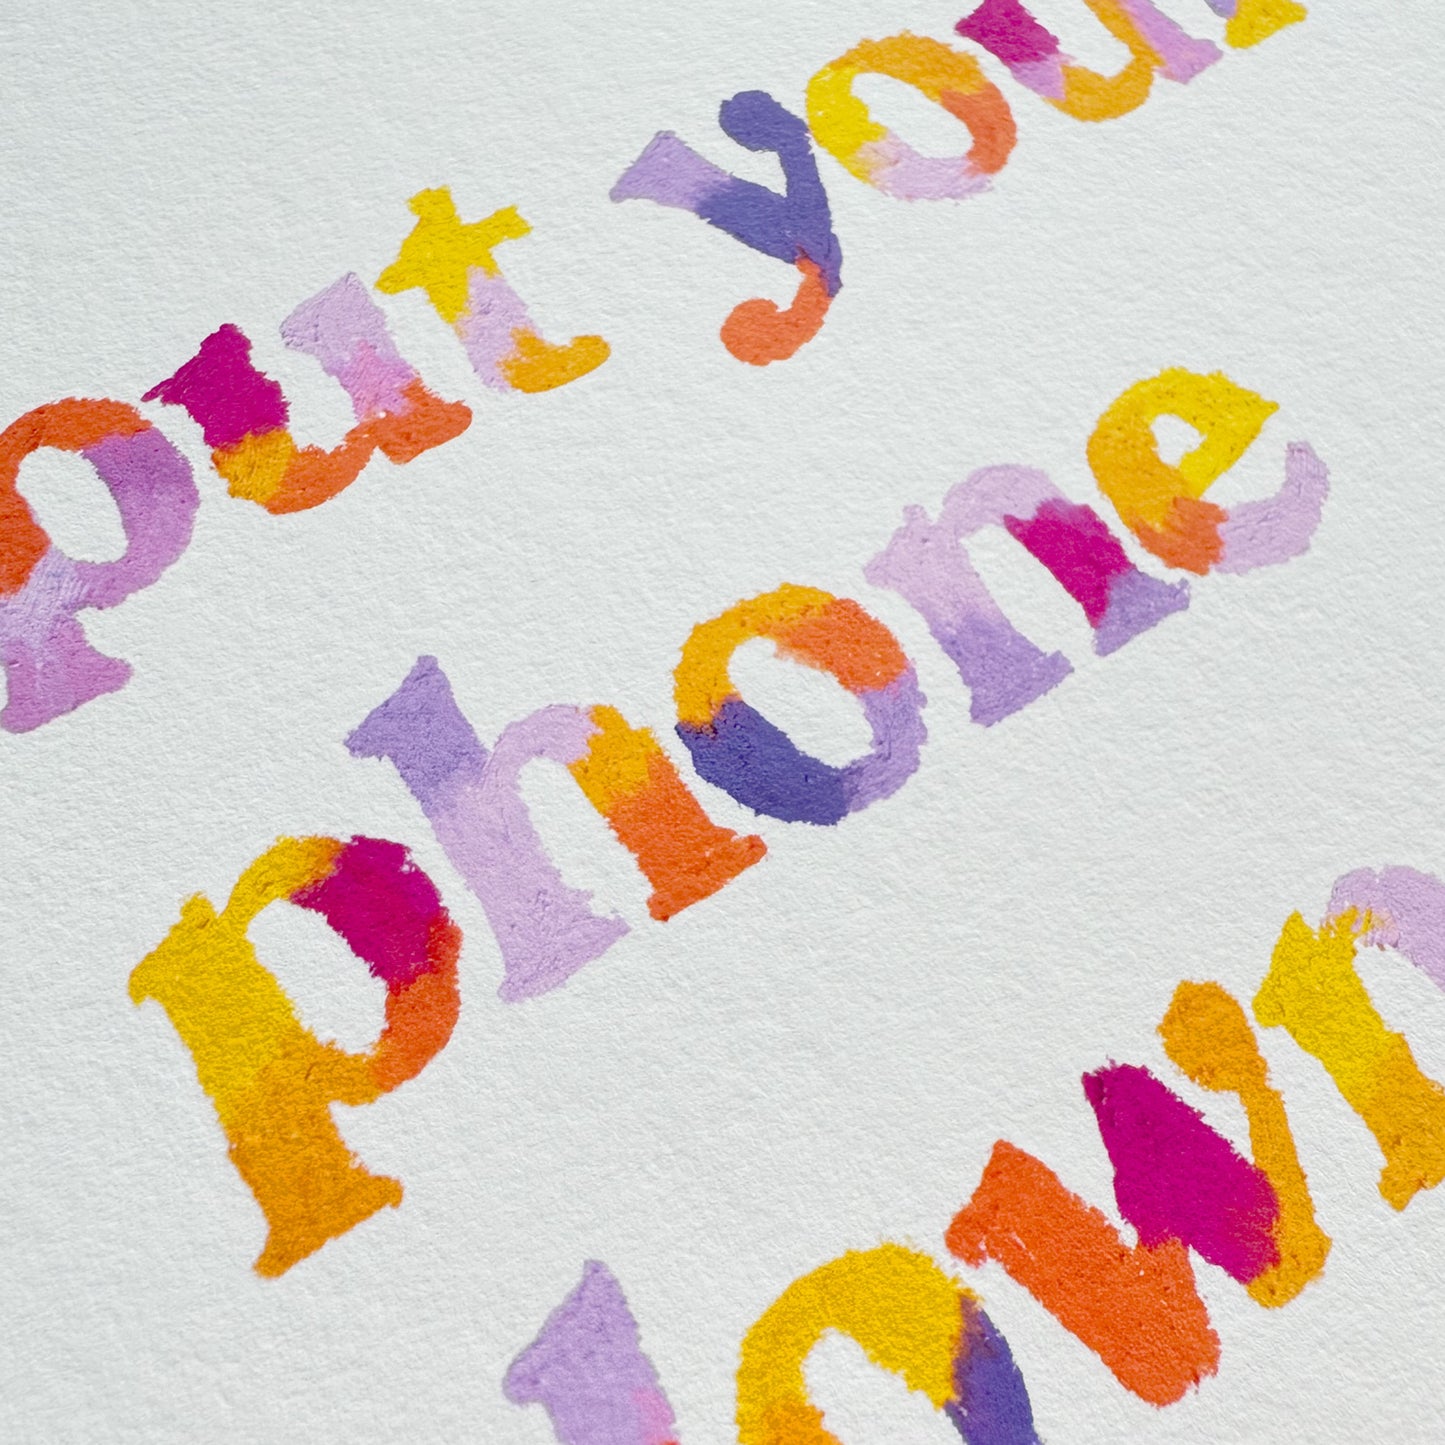 put your
phone
down